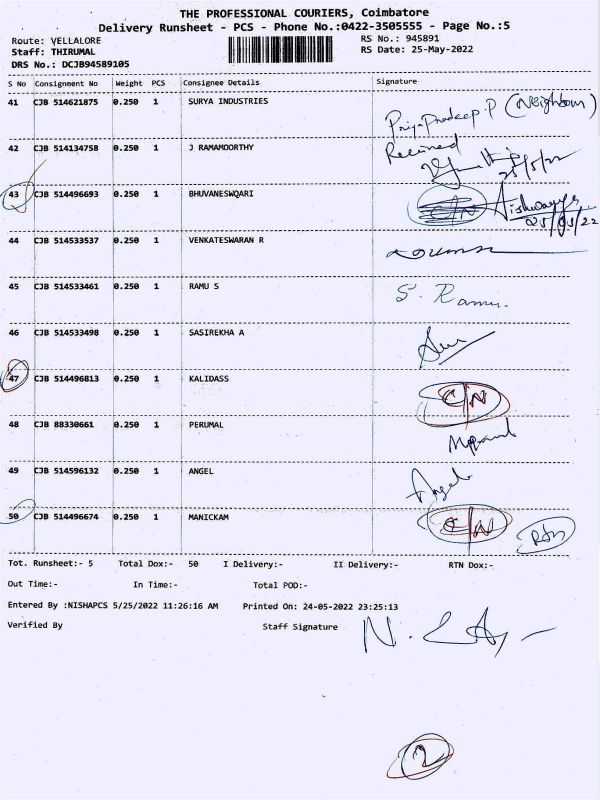 THE PROFESSIONAL COURIERS, Coimbatore
Delivery Runsheet - PCS - Phone No.:0422-3505555 - Page No.:5
Route: VELLALORE
RS No.: 945891
Staff: THIRUMAL
RS Date: 25-May-2022
DRS No.: DCJB94589105
S No Consignment No Weight PCS Consignee Details Signature
41 CJB 514621875 0.250 1 SURYA INDUSTRIES
Priya Pradeep.P (Neighbour)
42 CJB 514134758 0.250 1 J RAMAMOORTHY Received
25/5/22
43 CJB 514496693 0.250 1 BHUVANESWQARI C/N Aishwarya
25/05/22
44 CJB 514533537 0.250 1 VENKATESWARAN R
45 CJB 514533461 0.250 1 RAMU S S. Ramu.
46 CJB 514533498 0.250 1 SASIREKHA A
47 CJB 514496813 0.250 1 KALIDASS C/N
48 CJB 88330661 0.250 1 PERUMAL
49 CJB 514596132 0.250 1 ANGEL Angel
50 CJB 514496674 0.250 1 MANICKAM C/N
Tot. Runsheet:- 5 Total Dox:- 50 I Delivery:- II Delivery:- RTN Dox:-
Out Time:- In Time:- Total POD:-
Entered By :NISHAPCS 5/25/2022 11:26:16 AM Printed On: 24-05-2022 23:25:13
Verified By Staff Signature
2